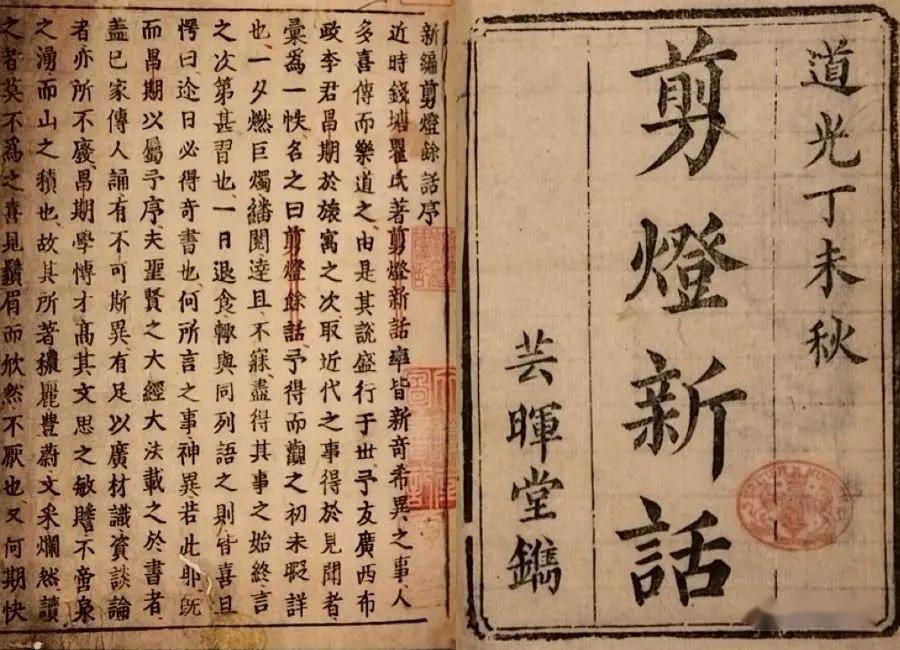 道光丁未秋
剪燈新話
芸暉堂鐫
新編剪燈餘話序
近時錢塘瞿氏著剪燈新話率皆新奇希異之事人
多喜傳而樂道之由是其說盛行于世予友廣西布
政李君昌期於旅寓之次取近代之事得於見聞者
彙為一帙名之曰剪燈餘話予得而觀之初未暇詳
也一夕燃巨燭繙閱達旦不寐盡得其事之始終言
之次第甚習也一日退食輙與同列語之則皆喜且
愕曰迩日必得奇書也何所言之事神異若此耶既
而昌期以屬予序夫聖賢之大經大法載之於書者
蓋已家傳人誦有不可斯異有足以廣材識資談論
者亦所不廢昌期學愽才高其文思之敏贍不啻泉
之湧而山之積也故其所著穠麗豐蔚文采爛然讀
之者莫不爲之喜見鬚眉而欣然不厭也又何期快